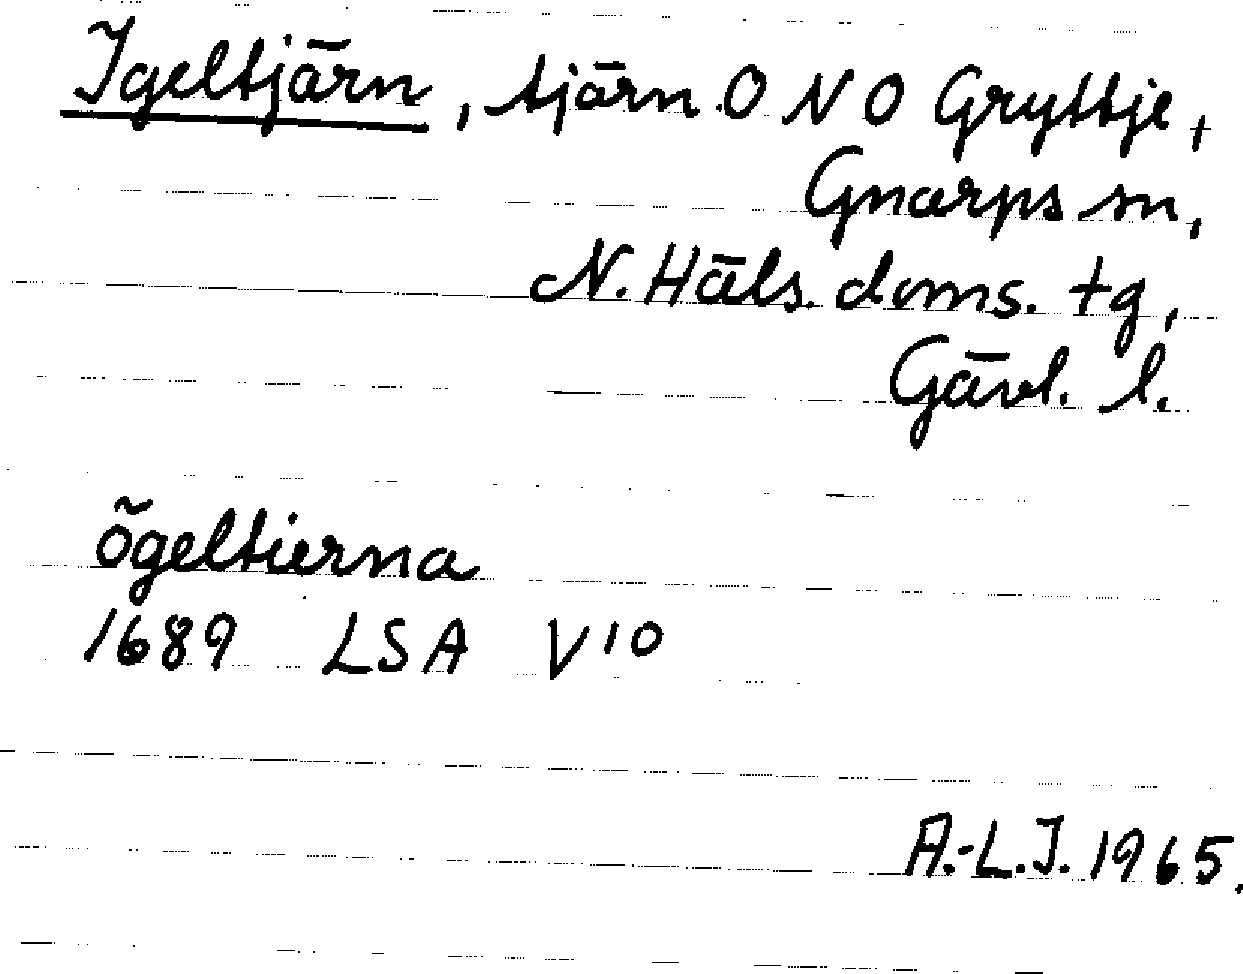 Igeltjärn, tjärn O N O Gryttje,
Gnarps sn,
N. Häls. doms. tg,
Gävl. l.
õgeltierna
1689 LSA V 10
A.-L.J. 1965.